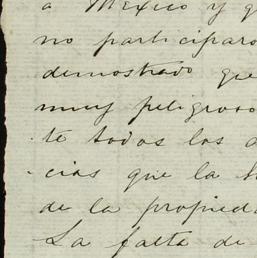 a Mexico y q
no participaro
demostrado que
muy peligroso
te todos los d
cias que la
de la propied
La falta de